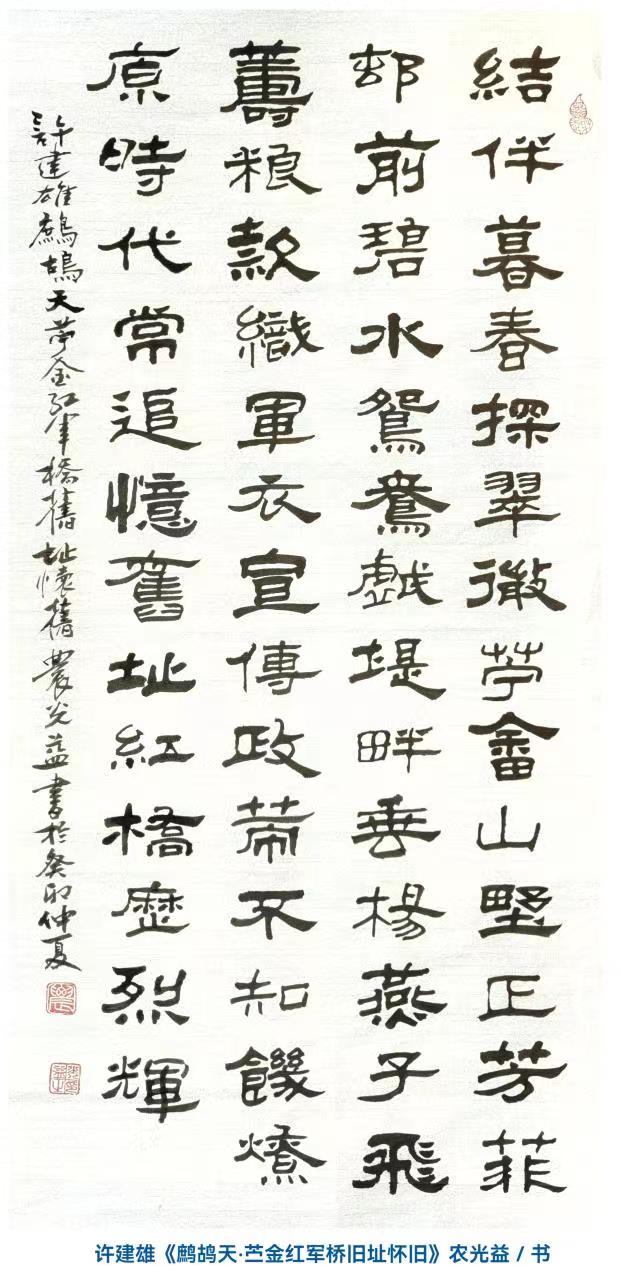 結伴暮春探翠微苧畬山墅正芳菲
邨前碧水鴛鴦戲堤畔垂楊燕子飛
籌粮款織軍衣宣傳政策不知饑燎
原時代常追憶舊址紅橋歷烈輝
許建雄鷓鴣天苧金紅軍橋舊址懷舊農光益書於癸卯仲夏
许建雄《鹧鸪天·苎金红军桥旧址怀旧》农光益 / 书